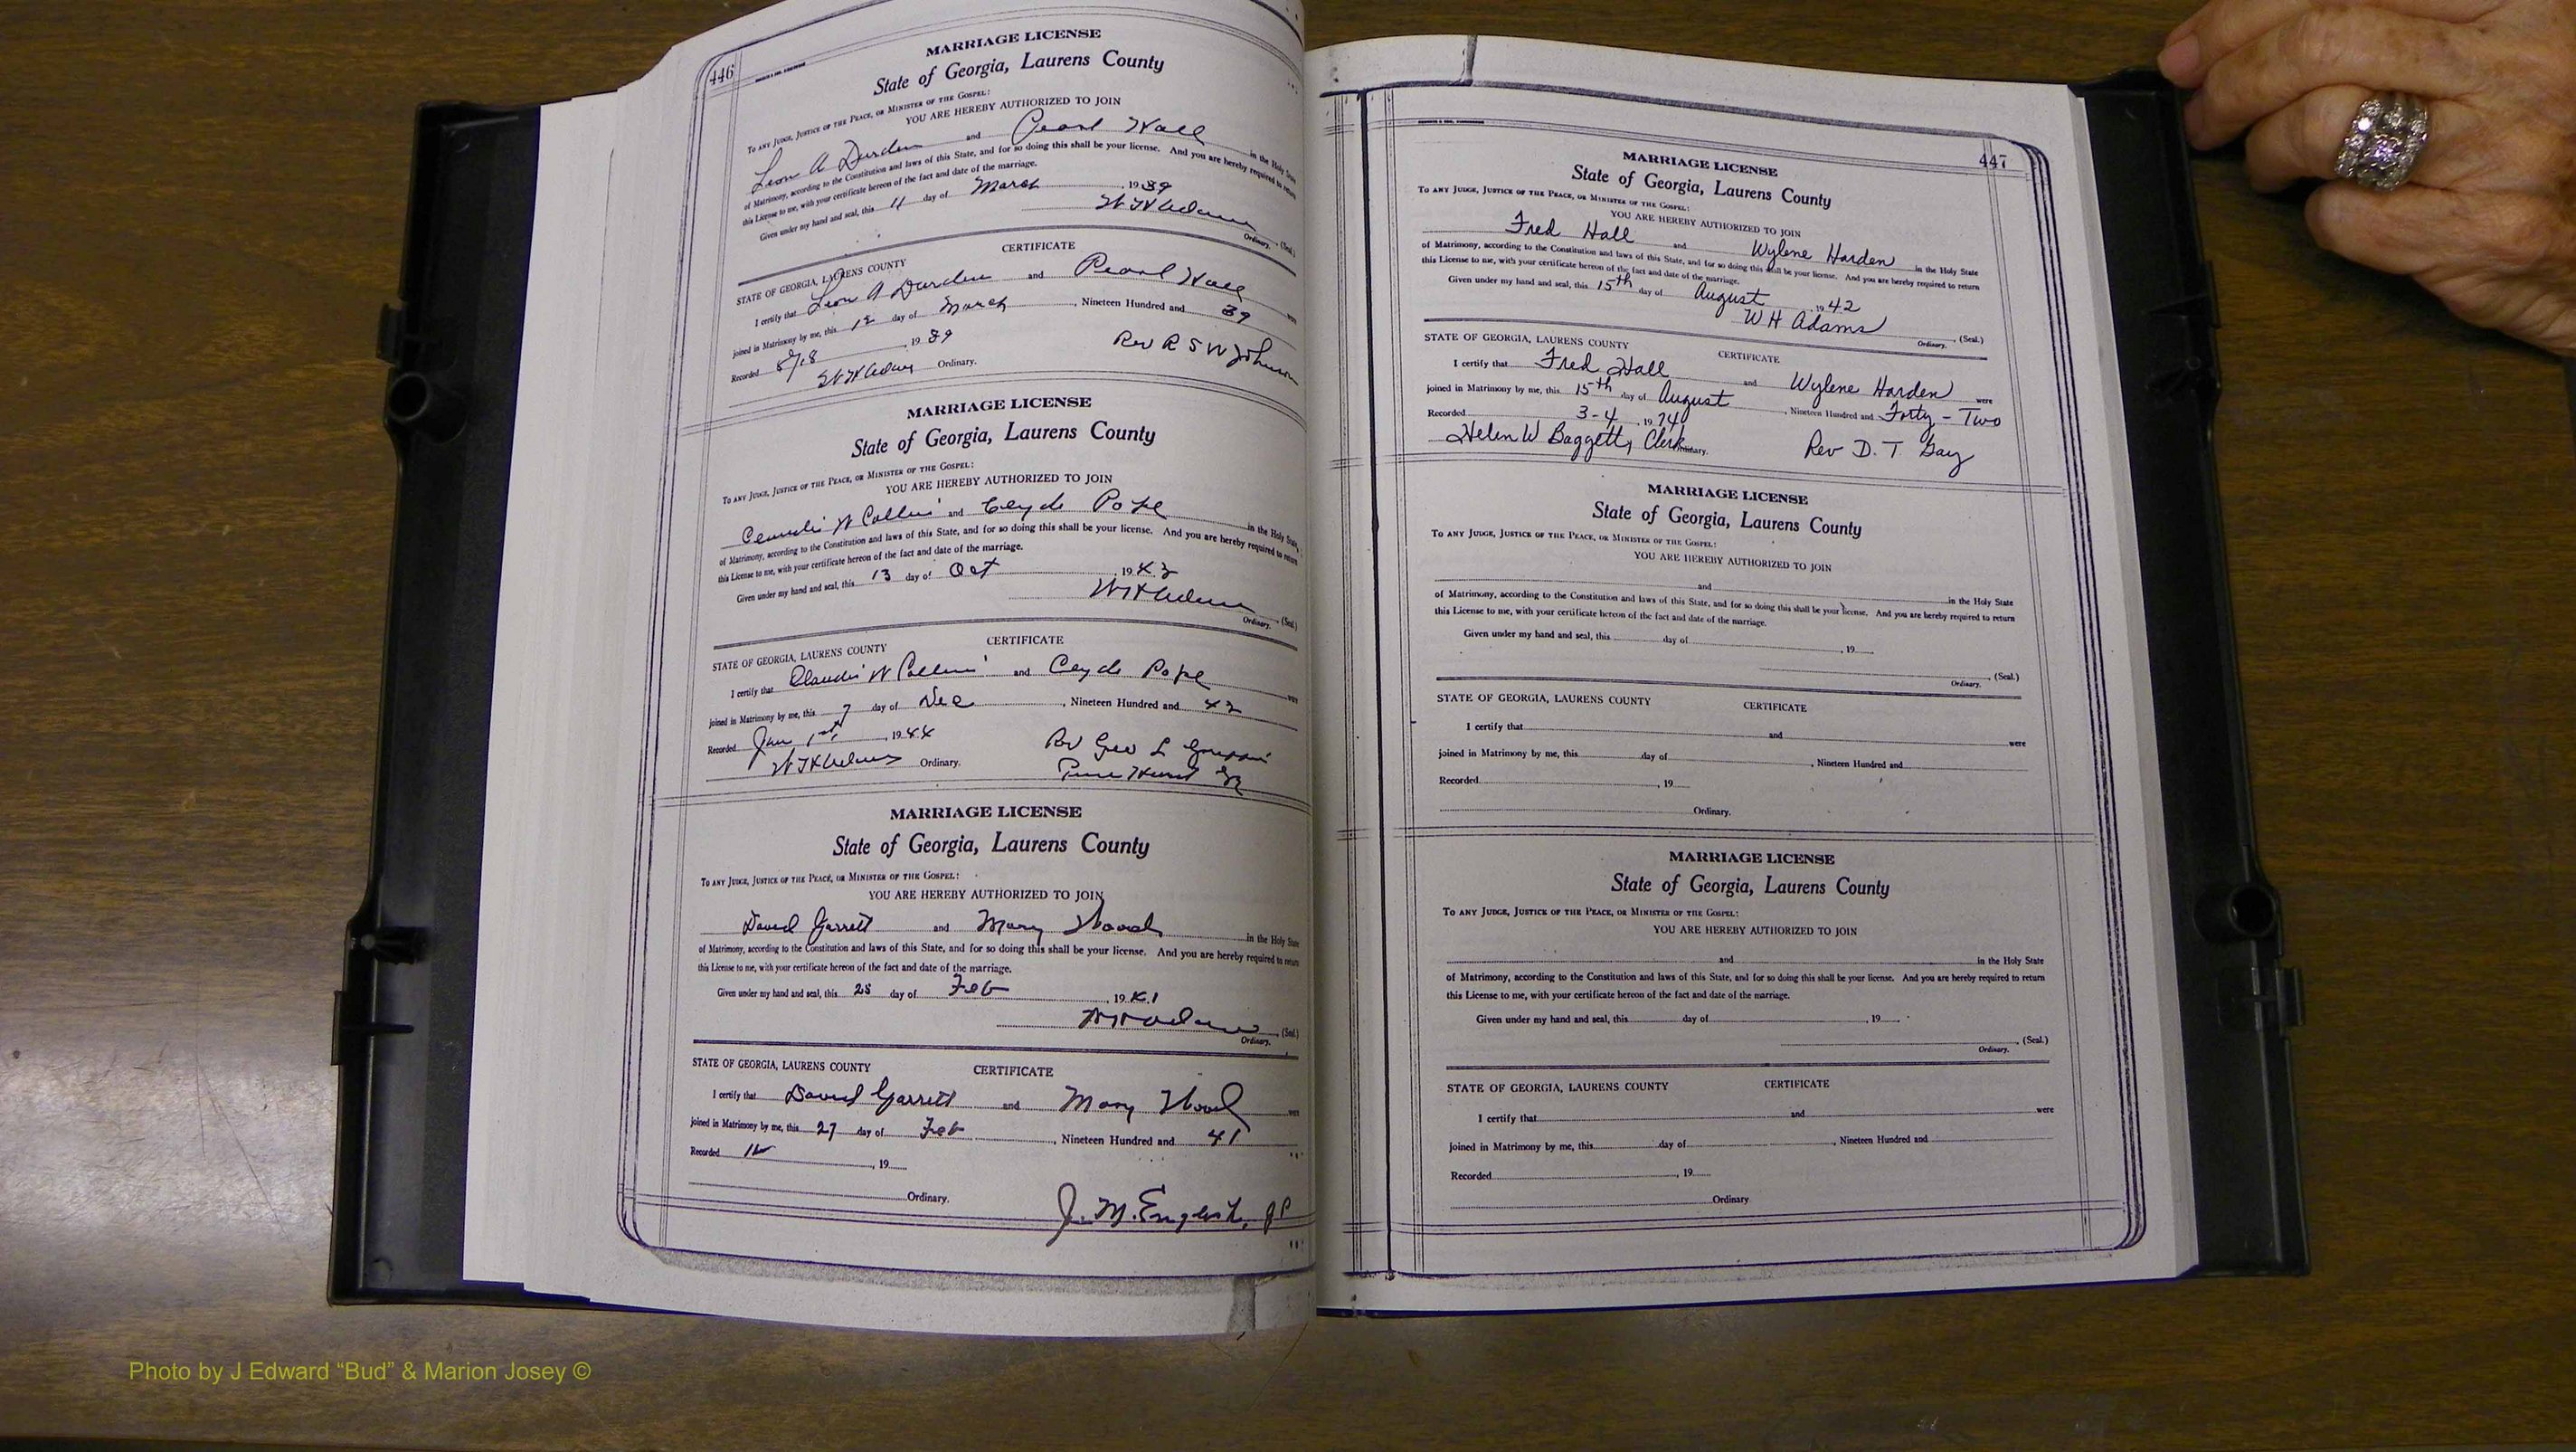 446
MARRIAGE LICENSE
State of Georgia, Laurens County
To any Judge, Justice of the Peace, or Minister of the Gospel:
YOU ARE HEREBY AUTHORIZED TO JOIN
Leon A Durden and Pearl Hall in the Holy State
of Matrimony, according to the Constitution and laws of this State, and for so doing this shall be your license. And you are hereby required to return
this License to me, with your certificate hereon of the fact and date of the marriage.
Given under my hand and seal, this 11 day of March 1939
W H Adams (Seal.)
Ordinary.
CERTIFICATE
STATE OF GEORGIA, LAURENS COUNTY
I certify that Leon A Durden and Pearl Hall were
joined in Matrimony by me, this 12 day of March, Nineteen Hundred and 39
Recorded 1939 Rev R S W Johnson
W H Adams Ordinary.
MARRIAGE LICENSE
State of Georgia, Laurens County
To any Judge, Justice of the Peace, or Minister of the Gospel:
YOU ARE HEREBY AUTHORIZED TO JOIN
W Collins and Clyde Pope in the Holy State
of Matrimony, according to the Constitution and laws of this State, and for so doing this shall be your license. And you are hereby required to return
this License to me, with your certificate hereon of the fact and date of the marriage.
Given under my hand and seal, this 13 day of Oct, 1942
W H Adams (Seal.)
Ordinary.
CERTIFICATE
STATE OF GEORGIA, LAURENS COUNTY
I certify that W Collins and Clyde Pope were
joined in Matrimony by me, this 7 day of Dec, Nineteen Hundred and 42
Recorded Jan 1st, 1944 Rev Geo L
W H Adams Ordinary.
MARRIAGE LICENSE
State of Georgia, Laurens County
To any Judge, Justice of the Peace, or Minister of the Gospel:
YOU ARE HEREBY AUTHORIZED TO JOIN
David Garrett and Mary Wood in the Holy State
of Matrimony, according to the Constitution and laws of this State, and for so doing this shall be your license. And you are hereby required to return
this License to me, with your certificate hereon of the fact and date of the marriage.
Given under my hand and seal, this 25 day of Feb, 1941
W H Adams (Seal.)
Ordinary.
STATE OF GEORGIA, LAURENS COUNTY CERTIFICATE
I certify that David Garrett and Mary Wood were
joined in Matrimony by me, this 27 day of Feb, Nineteen Hundred and 41
Recorded, 19
Ordinary. J. M. English, JP
447
MARRIAGE LICENSE
State of Georgia, Laurens County
To any Judge, Justice of the Peace, or Minister of the Gospel:
YOU ARE HEREBY AUTHORIZED TO JOIN
Fred Hall and Wylene Harden in the Holy State
of Matrimony, according to the Constitution and laws of this State, and for so doing this shall be your license. And you are hereby required to return
this License to me, with your certificate hereon of the fact and date of the marriage.
Given under my hand and seal, this 15th day of August, 1942
W H Adams (Seal.)
Ordinary.
STATE OF GEORGIA, LAURENS COUNTY CERTIFICATE
I certify that Fred Hall and Wylene Harden were
joined in Matrimony by me, this 15th day of August, Nineteen Hundred and Forty - Two
Recorded 3-4, 1974
Helen W Baggett, Clerk Rev D. T. Gay
MARRIAGE LICENSE
State of Georgia, Laurens County
To any Judge, Justice of the Peace, or Minister of the Gospel:
YOU ARE HEREBY AUTHORIZED TO JOIN
and in the Holy State
of Matrimony, according to the Constitution and laws of this State, and for so doing this shall be your license. And you are hereby required to return
this License to me, with your certificate hereon of the fact and date of the marriage.
Given under my hand and seal, this day of, 19
(Seal.)
Ordinary.
STATE OF GEORGIA, LAURENS COUNTY CERTIFICATE
I certify that and were
joined in Matrimony by me, this day of, Nineteen Hundred and
Recorded, 19
Ordinary.
MARRIAGE LICENSE
State of Georgia, Laurens County
To any Judge, Justice of the Peace, or Minister of the Gospel:
YOU ARE HEREBY AUTHORIZED TO JOIN
and in the Holy State
of Matrimony, according to the Constitution and laws of this State, and for so doing this shall be your license. And you are hereby required to return
this License to me, with your certificate hereon of the fact and date of the marriage.
Given under my hand and seal, this day of, 19
(Seal.)
Ordinary.
STATE OF GEORGIA, LAURENS COUNTY CERTIFICATE
I certify that and were
joined in Matrimony by me, this day of, Nineteen Hundred and
Recorded, 19
Ordinary
Photo by J Edward “Bud” & Marion Josey ©